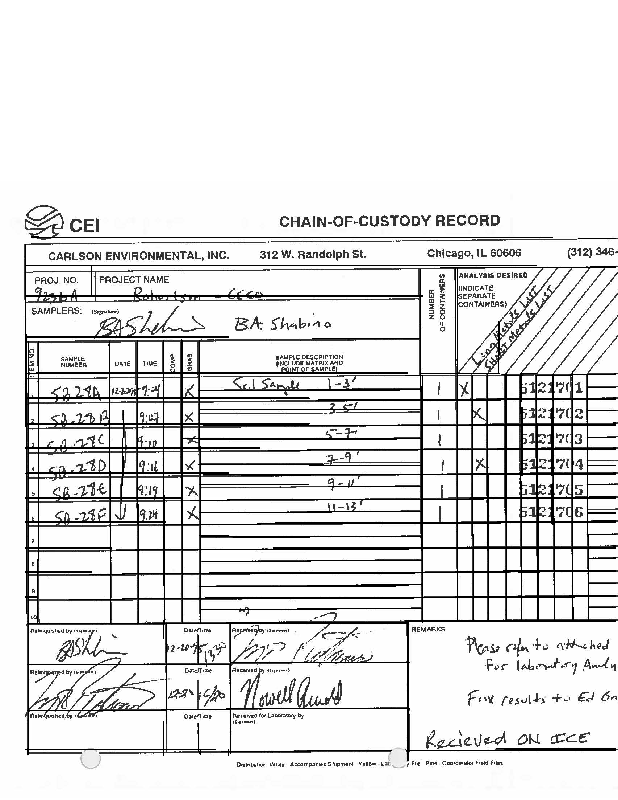 CEI
CHAIN-OF-CUSTODY RECORD
CARLSON ENVIRONMENTAL, INC. 312 W. Randolph St. Chicago, IL 60606 (312) 346-
PROJ NO. PROJECT NAME
9236A Robertson - CECO
SAMPLERS: (Signature)
BA Shabino
NUMBER OF CONTAINERS
ANALYSIS DESIRED
(INDICATE SEPARATE CONTAINERS)
Long Metals LIST
Short Metals LIST
ITEM NO SAMPLE NUMBER DATE TIME COMP. GRAB SAMPLE DESCRIPTION (INCLUDE MATRIX AND POINT OF SAMPLE)
1 SB-28A X Soil Sample 1-3' 1 X 5121701
2 SB-28B 9:07 X 3-5' 1 X 5121702
3 SB-28C 9:10 X 5-7' 1 5121703
4 SB-28D 9:16 X 7-9' 1 X 5121704
5 SB-28E 9:19 X 9-11' 1 5121705
6 SB-28F 9:24 X 11-13' 1 5121706
7
8
9
10
Relinquished by (Signature) Date/Time Received by (Signature) REMARKS
12-20-95
Please refer to attached
For laboratory Analy
Relinquished by (Signature) Date/Time Received by (Signature)
Nowell Arnold
Fax results to Ed
Relinquished by (Signature) Date/Time Received for Laboratory by (Signature)
Recieved ON ICE
Distribution: White - Accompanies Shipment Yellow - File Pink - Coordinator Field Files